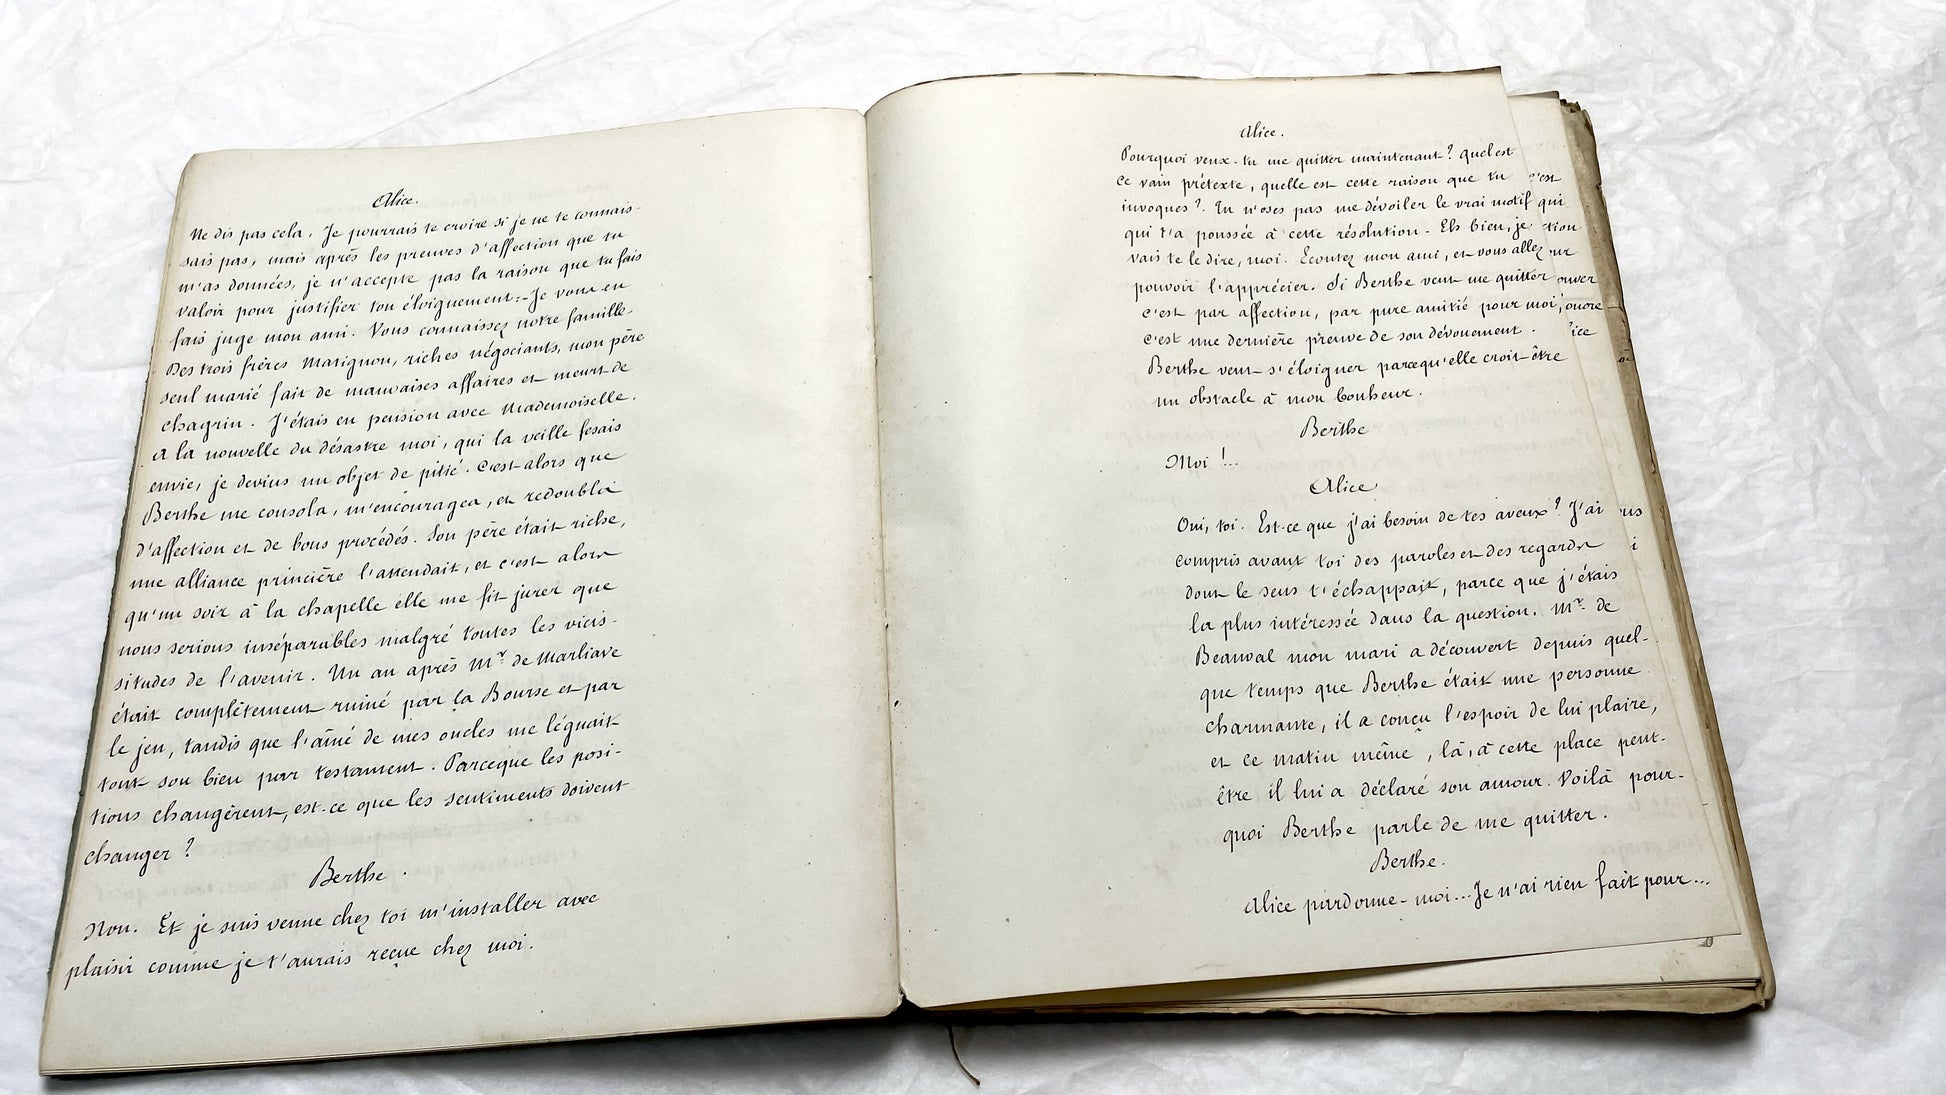 Alice.
Ne dis pas cela. Je pourrais te croire si je ne te connais-
sais pas, mais après les preuves d'affection que tu
m'as données, je n'accepte pas la raison que tu fais
valoir pour justifier ton éloignement:- Je vous en
fais juge mon ami. Vous connaissez notre famille.
Des trois frères Matignon, riches négociants, mon père
seul marié fait de mauvaises affaires et meurt de
chagrin. J'étais en pension avec Mademoiselle.
A la nouvelle du désastre moi, qui la veille fesais
envie, je devins un objet de pitié. C'est alors que
Berthe me consola, m'encouragea, et redoubla
d'affection et de bons procédés. Son père était riche,
une alliance princière l'attendait, et c'est alors
qu'un soir à la chapelle elle me fit jurer que
nous serions inséparables malgré toutes les vicis-
situdes de l'avenir. Un an après Mr de Marliave
était complètement ruiné par la Bourse et par
le jeu, tandis que l'aîné de mes oncles me léguait
tout son bien par testament. Parceque les posi-
tions changèrent, est-ce que les sentiments doivent
changer ?
Berthe.
Non. Et je suis venue chez toi m'installer avec
plaisir comme je t'aurais reçue chez moi.
Alice.
Pourquoi veux-tu me quitter maintenant ? Quel est
ce vain prétexte, quelle est cette raison que tu
invoques ? Tu n'oses pas me dévoiler le vrai motif qui
qui t'a poussée à cette résolution. Eh bien, je
vais te le dire, moi. Ecoutez mon ami, et vous allez
pouvoir l'apprécier. Si Berthe veut me quitter
c'est par affection, par pure amitié pour moi,
c'est une dernière preuve de son dévouement.
Berthe veut s'éloigner parcequ'elle croit être
un obstacle à mon bonheur.
Berthe
Moi !...
Alice
Oui, toi. Est-ce que j'ai besoin de tes aveux ? J'ai
compris avant toi des paroles et des regards
dont le sens t'échappait, parce que j'étais
la plus intéressée dans la question. Mr. de
Beauval mon mari a découvert depuis quel-
que temps que Berthe était une personne
charmante, il a conçu l'espoir de lui plaire,
et ce matin même, là, à cette place peut-
être il lui a déclaré son amour. Voilà pour-
quoi Berthe parle de me quitter.
Berthe.
Alice pardonne-moi... Je n'ai rien fait pour...